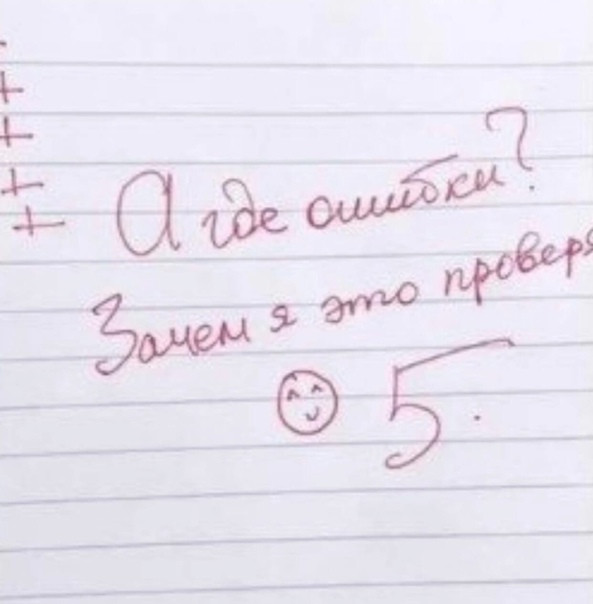 +
+
+
+
А где ошибки?
Зачем я это проверя
5.